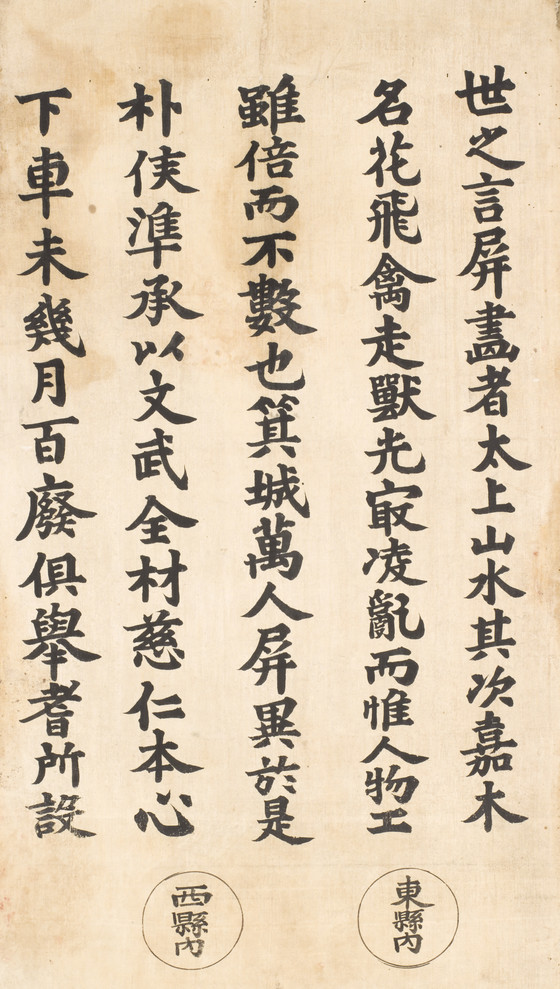 世之言屛畵者太上山水其次嘉木
名花飛禽走獸先㝡凌亂而惟人物工
雖倍而不數也箕城萬人屛異於是
朴侯準承以文武全材慈仁本心
下車未幾月百廢俱擧耆所設
東縣內
西縣內